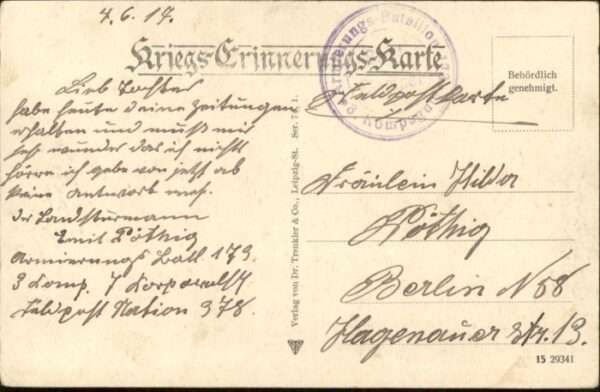 4.6.17.
Kriegs-Erinnerungs-Karte
Armierungs-Bataillon
Kompagnie
Feldpostkarte
Behördlich
genehmigt.
Lieb Tochter
habe heute deine Zeitungen
erhalten und muß mir
sehr wunder das ich nichts
hörre ich gebe von jetzt ab
keine Antwort mehr.
der Landsturmann
Emil Pöthig
Armierungs Batl. 179
3 Komp. 7 Korporalsch
Feldpost Station 378.
Verlag von Dr. Trenkler & Co., Leipzig-St. Ser. 7
Fräulein Hilda
Pöthig
Berlin N 58
Hagenauer Str. 13.
15 29341